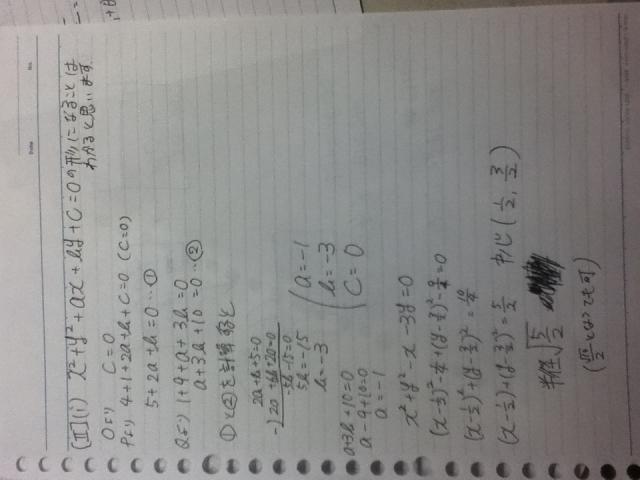 No.
Date
[II](i) x²+y²+ax+by+C=0の形になることは
わかると思います
Oより C=0
Pより 4+1+2a+b+C=0 (C=0)
5+2a+b=0…①
Qより 1+9+a+3b=0
a+3b+10=0…②
①と②を計算すると
2a+b+5=0
-)2a+6b+20=0
-5b-15=0
5b=-15
b=-3
a+3b+10=0
a-9+10=0
a=-1
(a=-1
b=-3
C=0
x²+y²-x-3y=0
(x-1/2)²-1/4+(y-3/2)²-9/4=0
(x-1/2)²+(y-3/2)²=10/4
(x-1/2)²+(y-3/2)²=5/2 中心(1/2, 3/2)
半径√5/2
(√10/2 でも可)